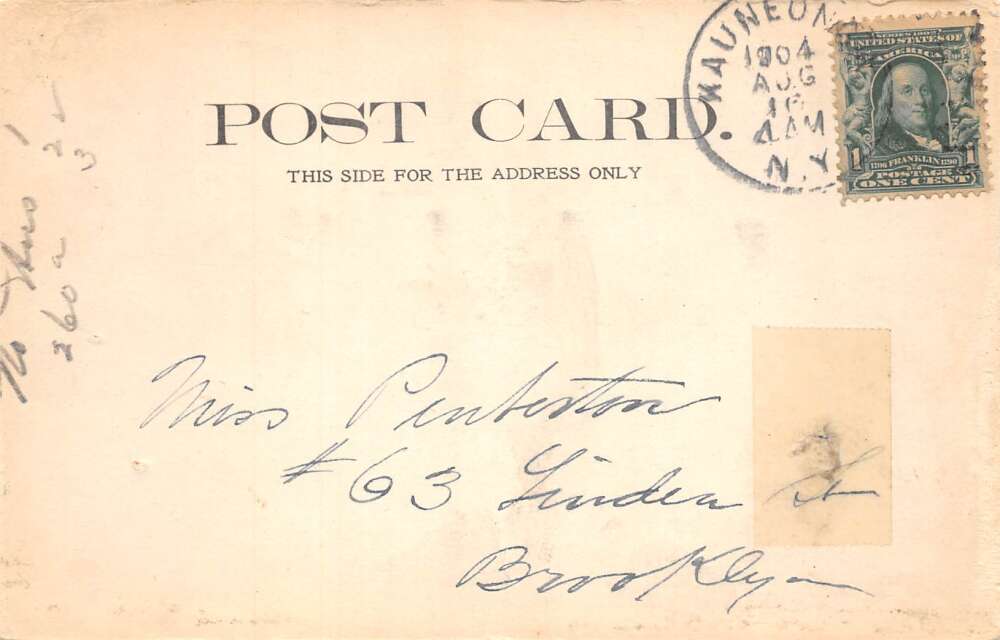 POST CARD.
THIS SIDE FOR THE ADDRESS ONLY
1904
AUG
4 AM
N.Y.
SERIES 1902
UNITED STATES OF
AMERICA
1 FRANKLIN 1
POSTAGE
ONE CENT
Miss Pemberton
# 63 Linden St
Brooklyn
260 a